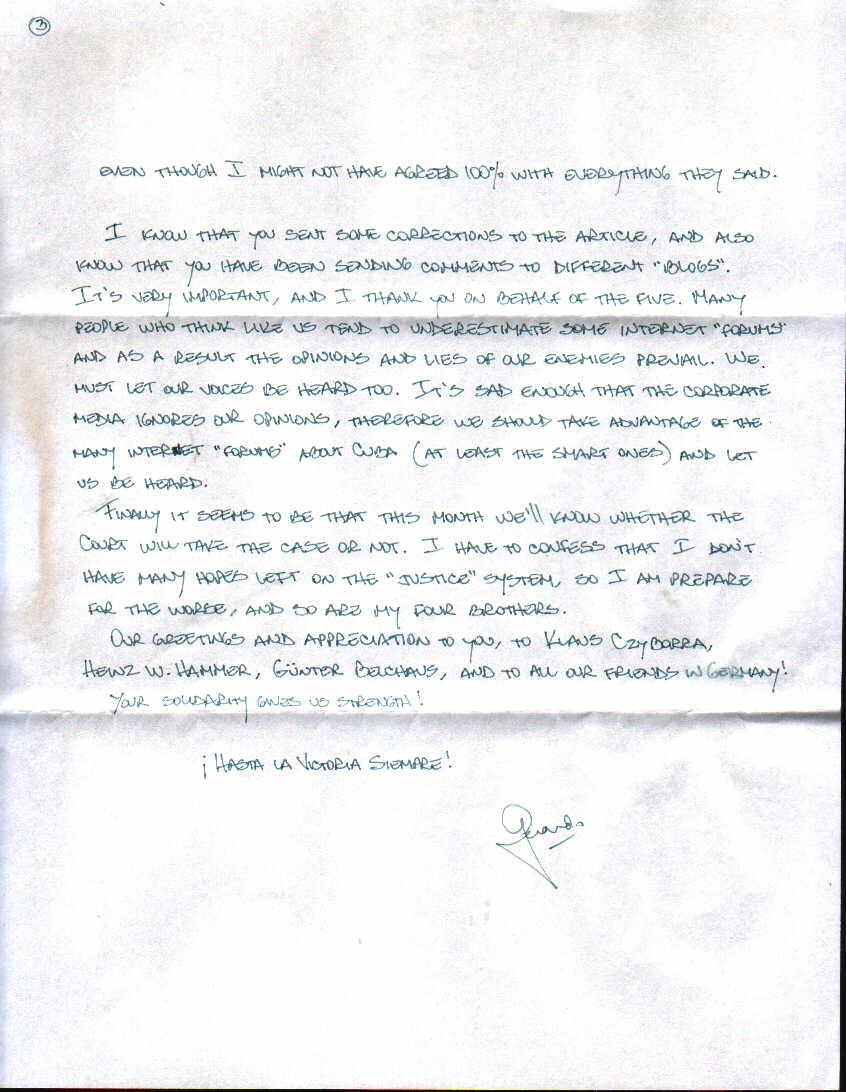 3
EVEN THOUGH I MIGHT NOT HAVE AGREED 100% WITH EVERYTHING THEY SAID.
I KNOW THAT YOU SENT SOME CORRECTIONS TO THE ARTICLE, AND ALSO
KNOW THAT YOU HAVE BEEN SENDING COMMENTS TO DIFFERENT "BLOGS".
IT'S VERY IMPORTANT, AND I THANK YOU ON BEHALF OF THE FIVE. MANY
PEOPLE WHO THINK LIKE US TEND TO UNDERESTIMATE SOME INTERNET "FORUMS"
AND AS A RESULT THE OPINIONS AND LIES OF OUR ENEMIES PREVAIL. WE
MUST LET OUR VOICES BE HEARD TOO. IT'S SAD ENOUGH THAT THE CORPORATE
MEDIA IGNORES OUR OPINIONS, THEREFORE WE SHOULD TAKE ADVANTAGE OF THE
MANY INTERNET "FORUMS" ABOUT CUBA (AT LEAST THE SMART ONES) AND LET
US BE HEARD.
FINALLY IT SEEMS TO BE THAT THIS MONTH WE'LL KNOW WHETHER THE
COURT WILL TAKE THE CASE OR NOT. I HAVE TO CONFESS THAT I DON'T
HAVE MANY HOPES LEFT ON THE "JUSTICE" SYSTEM, SO I AM PREPARE
FOR THE WORSE, AND SO ARE MY FOUR BROTHERS.
OUR GREETINGS AND APPRECIATION TO YOU, TO KLAUS CZYBORRA,
HEINZ W. HAMMER, GÜNTER BELCHAUS, AND TO ALL OUR FRIENDS IN GERMANY!
YOUR SOLIDARITY GIVES US STRENGTH!
¡HASTA LA VICTORIA SIEMPRE!
Gerardo